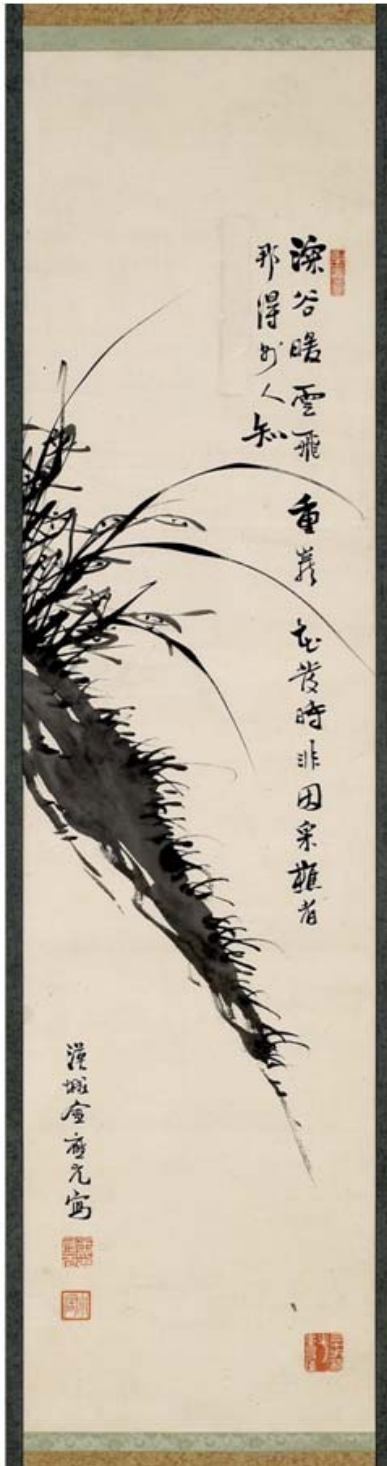 深谷暖雲飛重巖花發時非因采樵者
那得外人知
漢城金應元寫